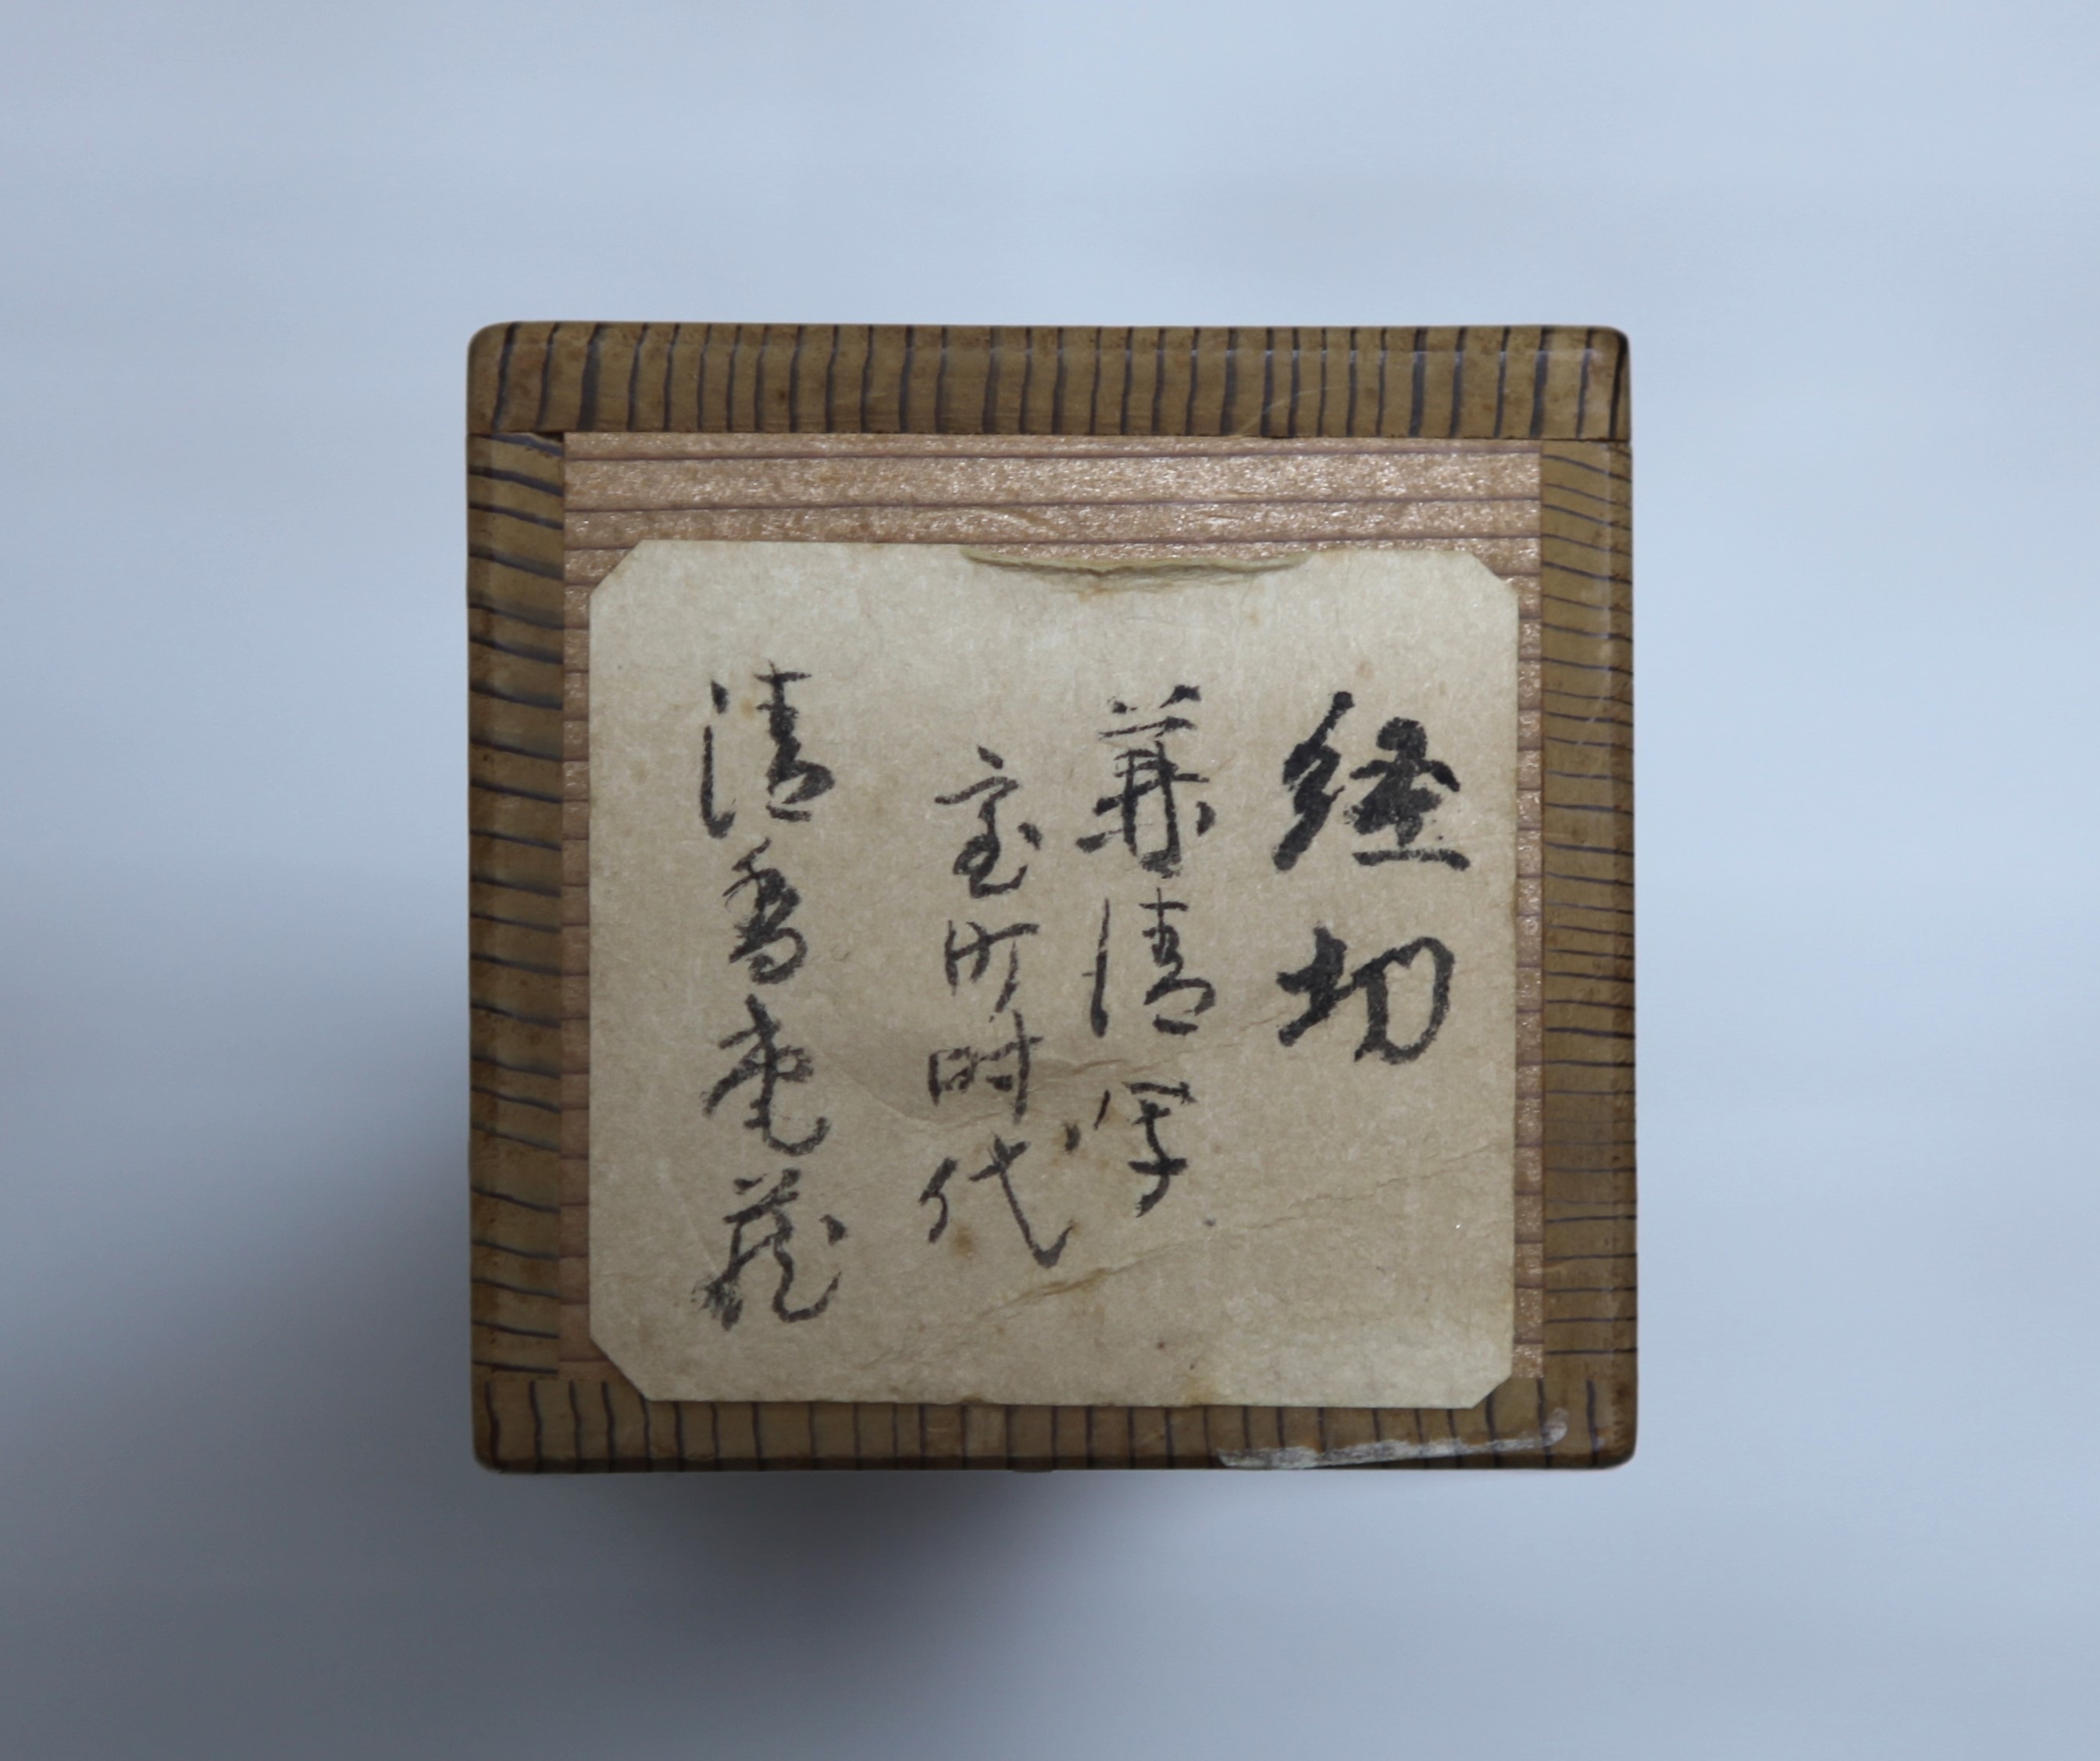 経切
兼清写
室町時代
清香庵蔵